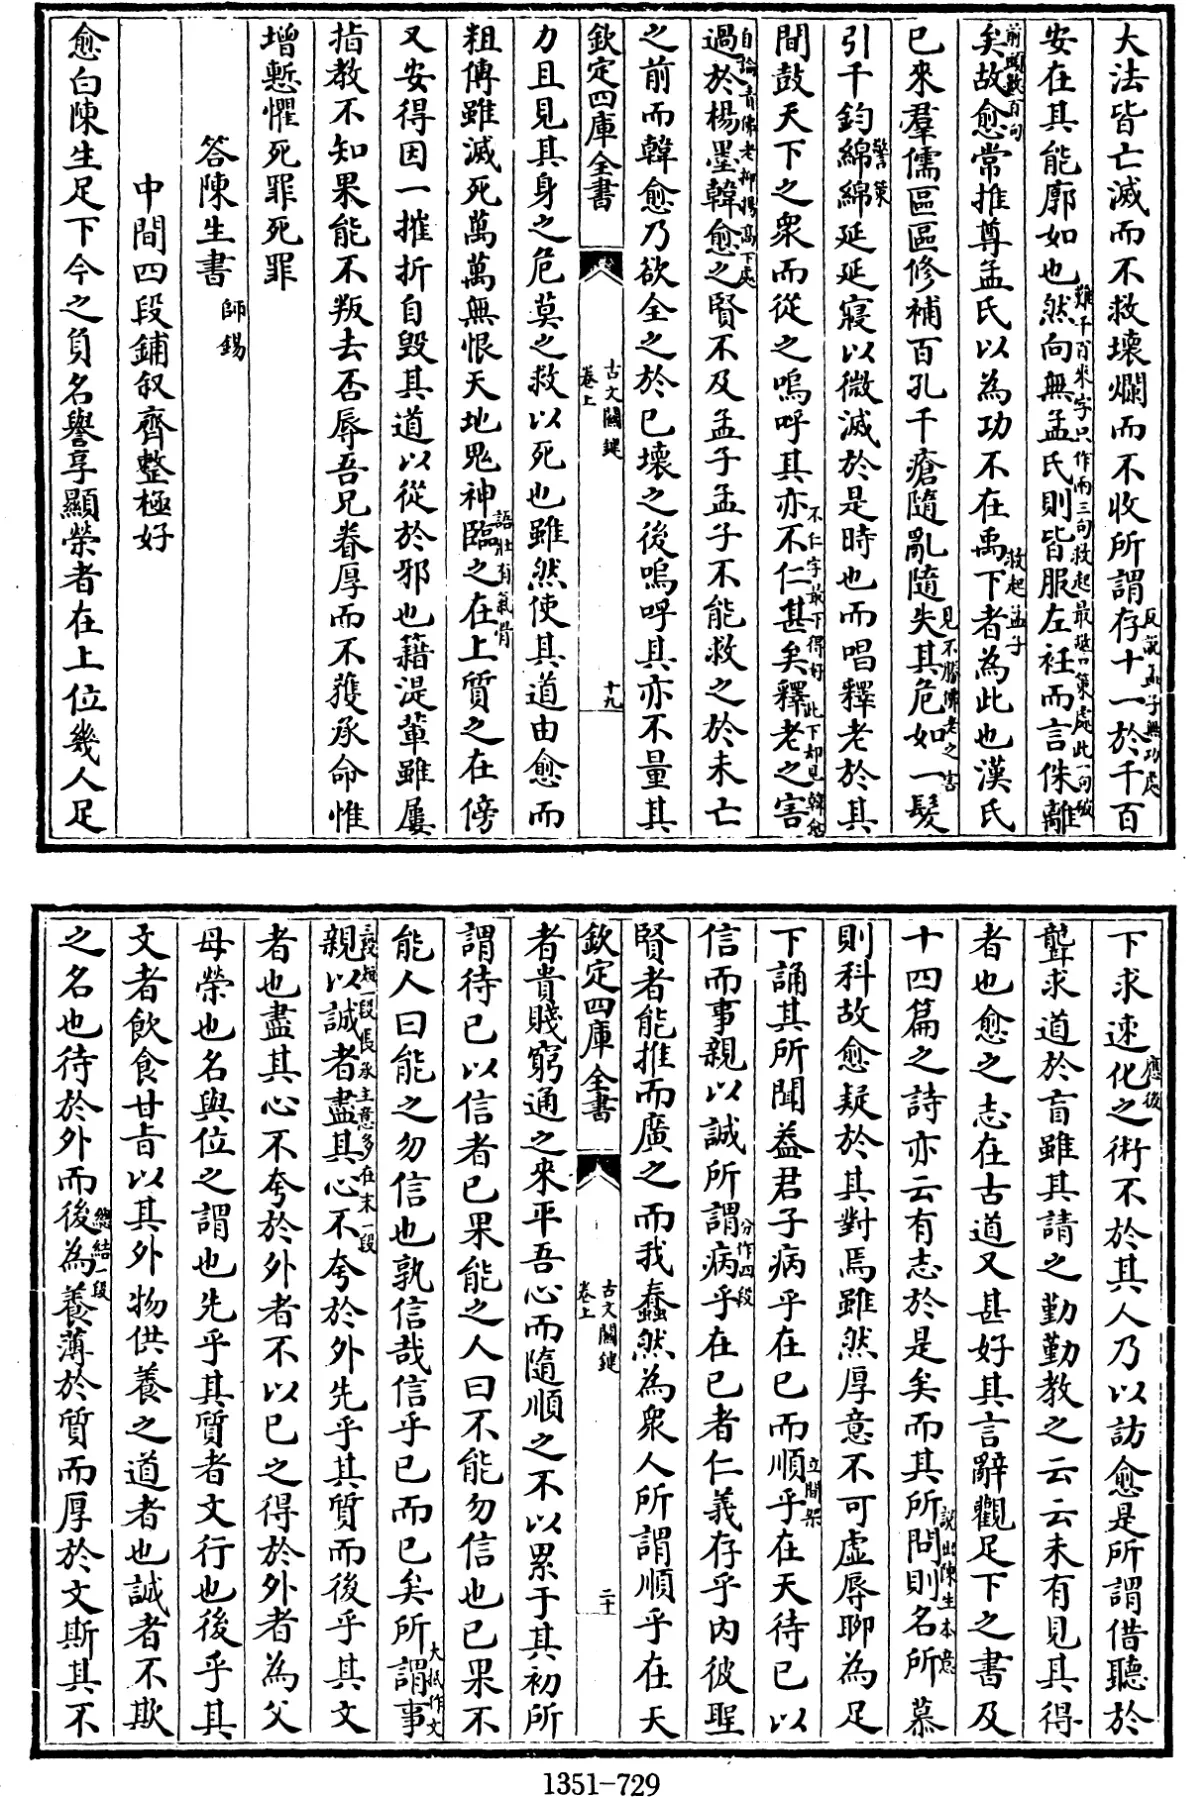 大法皆亡滅而不救壞爛而不收所謂存十一於千百
反說孟子無功處
安在其能廓如也然向無孟氏則皆服左衽而言侏離
雖千百來字只作兩三句救起最 此一句
矣故愈常推尊孟氏以為功不在禹下者為此也漢氏
前頭數百句
救起孟子
已來羣儒區區修補百孔千瘡隨亂隨失其危如一髮
見不勝佛老之害
引千鈞綿綿延延寖以微滅於是時也而唱釋老於其
警策
間鼓天下之衆而從之嗚呼其亦不仁甚矣釋老之害
不仁字最下得好
此下却見韓
過於楊墨韓愈之賢不及孟子孟子不能救之於未亡
自論責佛老抑揚高下處
之前而韓愈乃欲全之於已壞之後嗚呼其亦不量其
欽定四庫全書
古文關鍵
卷上
十九
力且見其身之危莫之救以死也雖然使其道由愈而
粗傳雖滅死萬萬無恨天地鬼神臨之在上質之在傍
語壯有氣骨
又安得因一摧折自毀其道以從於邪也籍湜輩雖屢
指教不知果能不叛去否辱吾兄眷厚而不獲承命惟
增慙懼死罪死罪
答陳生書 師錫
中間四段鋪叙齊整極好
愈白陳生足下今之負名譽享顯榮者在上位幾人足
下求速化之術不於其人乃以訪愈是所謂借聽於
應後
聾求道於盲雖其請之勤勤教之云云未有見其得
者也愈之志在古道又甚好其言辭觀足下之書及
十四篇之詩亦云有志於是矣而其所問則名所慕
說出陳生本意
則科故愈疑於其對焉雖然厚意不可虛辱聊為足
下誦其所聞葢君子病乎在已而順乎在天待已以
立間架
信而事親以誠所謂病乎在已者仁義存乎内彼聖
分作四段
賢者能推而廣之而我蠢然為衆人所謂順乎在天
欽定四庫全書
古文關鍵
卷上
二十
者貴賤窮通之來平吾心而隨順之不以累于其初所
謂待已以信者已果能之人曰不能勿信也已果不
能人曰能之勿信也孰信哉信乎已而已矣所謂事
大抵作文
親以誠者盡其心不夸於外先乎其質而後乎其文
三段短一段長承主意多在末一段
者也盡其心不夸於外者不以已之得於外者為父
母榮也名與位之謂也先乎其質者文行也後乎其
文者飲食甘旨以其外物供養之道者也誠者不欺
之名也待於外而後為養薄於質而厚於文斯其不
總結一段
1351-729